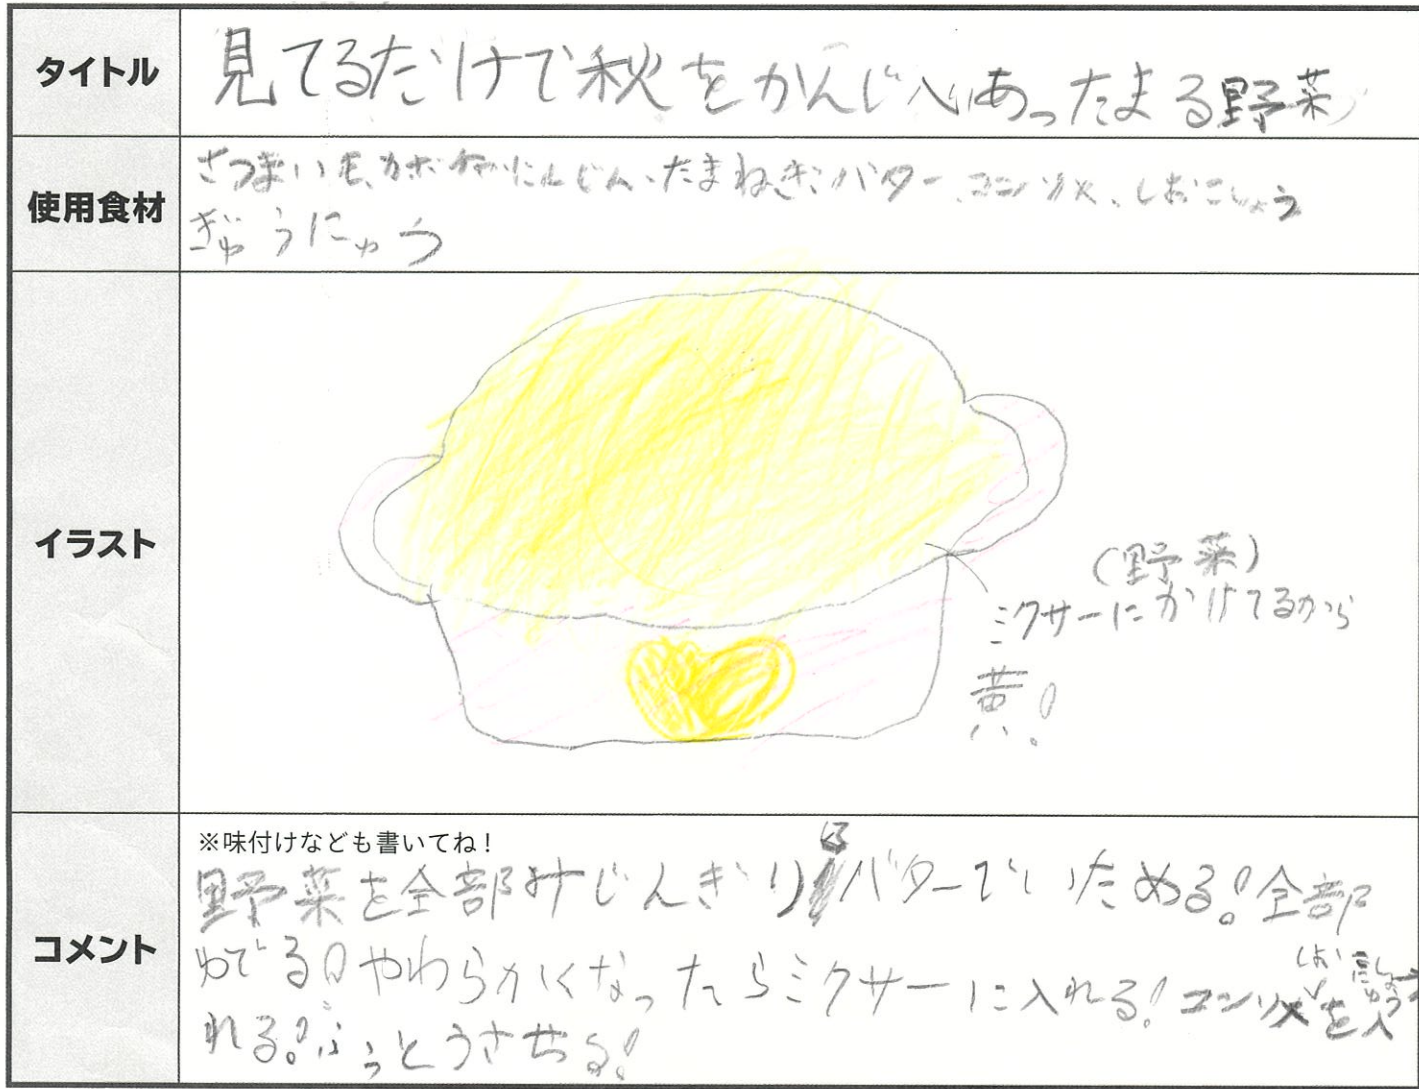 タイトル
見てるだけで秋をかんじ心あったまる野菜
使用食材
さつまいも、カボチャ、にんじん、たまねぎ、バター、コンソメ、しおこしょう
ぎゅうにゅう
イラスト
(野菜)
ミクサーにかけてるから
黄!
コメント
※味付けなども書いてね!
野菜を全部みじんぎりにバターでいためる!全部
ゆでる!やわらかくなったらミクサーに入れる!コンソメを入
しお
れる!ふっとうさせる!